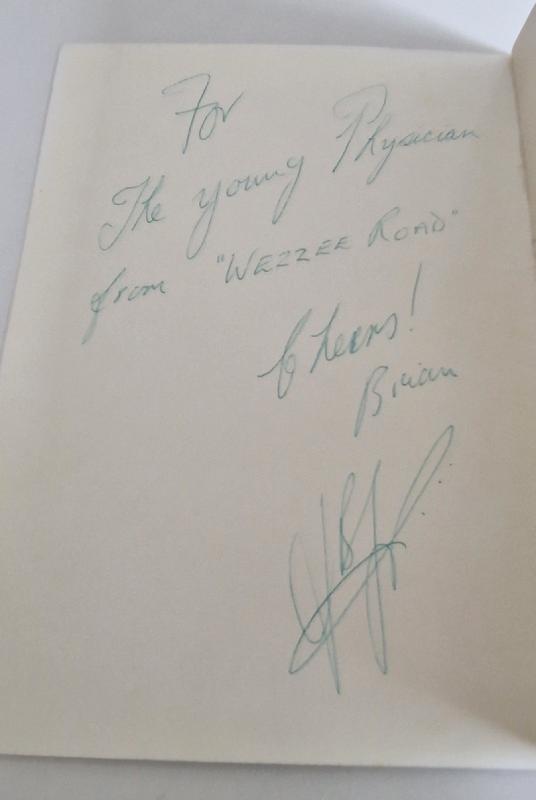 For
The young Physician
from "WEZZEE ROAD"
Cheers!
Brian